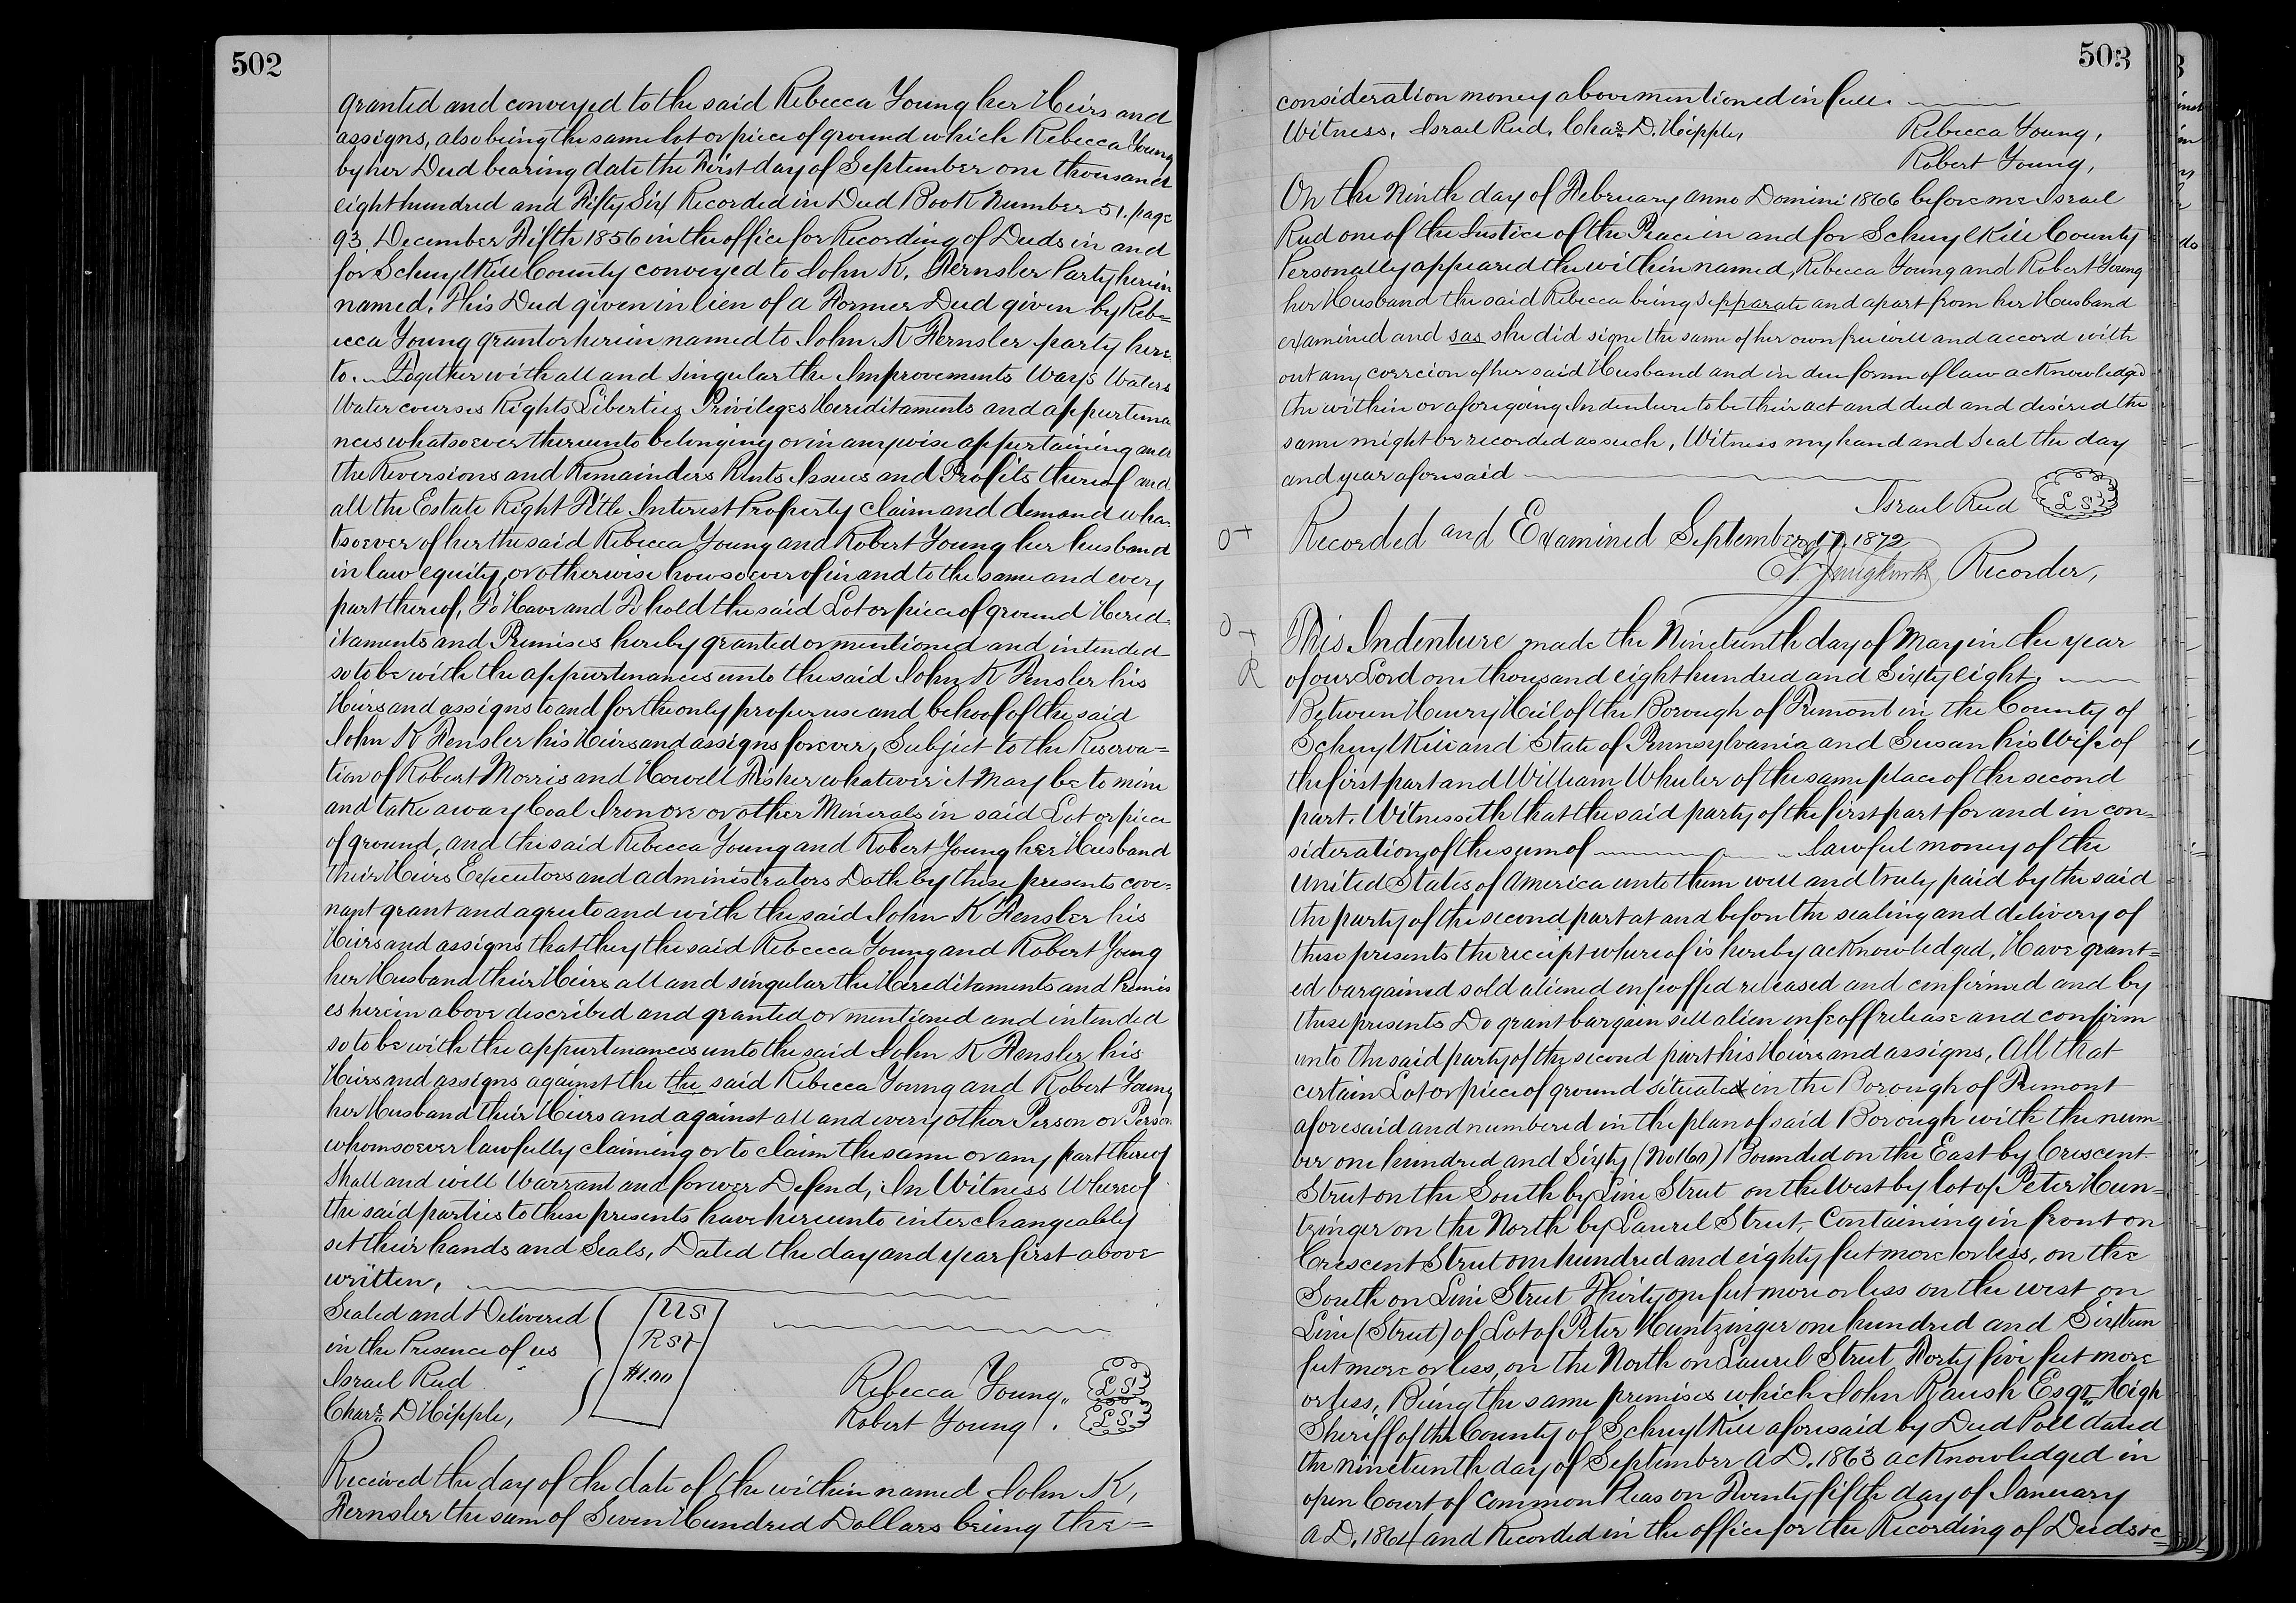 502
granted and conveyed to the said Rebecca Young her Heirs and
assigns, also being the same lot or piece of ground which Rebecca Young
by her Deed bearing date the First day of September one thousand
eight hundred and Fifty Six Recorded in Deed Book Number 51. page
93. December Fifth 1856 in the office for Recording of Deeds in and
for Schuylkill County conveyed to John K. Fernsler Party herein
named. This Deed given in lien of a Former Deed given by Reb=
ecca Young grantor herein named to John K Fernsler party here
to. Together with all and Singular the Improvements Ways Waters
Water courses Rights Liberties Privileges Hereditaments and appurtena
nces whatsoever thereunto belonging or in any wise appertaining and
the Reversions and Remainders Rents Issues and Profits thereof and
all the Estate Right Title Interest Property claim and demand wha-
tsoever of her the said Rebecca Young and Robert Young her husband
in law equity, or otherwise howsoever of in and to the same and every
part thereof, To Have and To hold the said Lot or piece of ground Hered-
itaments and Premises hereby granted or mentioned and intended
so to be with the appurtenances unto the said John K Fensler his
Heirs and assigns to and for the only proper use and behoof of the said
John K Fensler his Heirs and assigns forever, Subject to the Reserva=
tion of Robert Morris and Howell Fisher whatever it May be to mine
and take away Coal Iron ore or other Minerals in said Lot or piece
of ground, and the said Rebecca Young and Robert Young her Husband
their Heirs Executors and administrators Doth by these presents cove=
nant grant and agree to and with the said John K Fensler his
Heirs and assigns that they the said Rebecca Young and Robert Young
her Husband their Heirs all and singular the Hereditaments and Premis
es herein above described and granted or mentioned and intended
so to be with the appurtenances unto the said John K Fensler his
Heirs and assigns against the the said Rebecca Young and Robert Young
her Husband their Heirs and against all and every other Person or Person
whomsoever lawfully claiming or to claim the same or any part thereof
Shall and will Warrant and forever Defend, In Witness Whereof
the said parties to these presents have hereunto interchangeably
set their hands and Seals, Dated the day and year first above
written,
Sealed and Delivered
in the Presence of us
Israel Reed
Chars. D Hipple,
US
RSt
$1.00
Rebecca Young,, LS
Robert Young. LS
Received the day of the date of the within named John K,
Fernsler the sum of Seven Hundred Dollars being the=
503
consideration money above mentioned in full.
Witness, Israel Reed, Chas. D. Hipple,
Rebecca Young,
Robert Young,
On the Ninth day of February anno Domini 1866 before me Israel
Reed one of the Justice of the Peace in and for Schuylkill County
Personally appeared the within named, Rebecca Young and Robert Young
her Husband the said Rebecca being sepparate and apart from her Husband
examined and sas she did signe the same of her own free will and accord with
out any correcion of her said Husband and in due form of law acknowledged
the within or aforegoing Indenture to be their act and deed and desired the
same might be recorded as such, Witness my hand and Seal the day
and year aforesaid
Israel Reed LS
Recorded and Examined September 17. 1872
Recorder,
This Indenture made the Nineteenth day of May in the year
of our Lord one thousand eight hundred and Sixty eight.
Between Henry Heil of the Borough of Tremont in the County of
Schuylkill and State of Pennsylvania and Susan his Wife of
the first part and William Wheeler of the same place of the second
part. Witnesseth that the said party of the first part for and in con=
sideration of the sum of lawful money of the
United States of America unto them well and truly paid by the said
the party of the second part at and before the sealing and delivery of
these presents the receipt whereof is hereby acknowledged, Have grant=
ed bargained sold aliened enfeoffed released and confirmed and by
these presents Do grant bargain sell alien enfeoff release and confirm
unto the said party of the second part his Heirs and assigns, All that
certain Lot or piece of ground situate in the Borough of Tremont
aforesaid and numbered in the plan of said Borough with the num
ber one hundred and Sixty (No 160) Bounded on the East by Crescent
Street on the South by Line Street on the West by lot of Peter Hun=
tzinger on the North by Laurel Street, Containing in front on
Crescent Street one hundred and eighty feet more or less, on the
South on Line Street Thirty one feet more or less on the west on
Line (Street) of Lot of Peter Huntzinger one hundred and Sixteen
feet more or less, on the North on Laurel Street Forty five feet more
or less, Being the same premises which John Rausch Esqr. High
Sheriff of the County of Schuylkill aforesaid by Deed Poll dated
the nineteenth day of September A.D. 1863 acknowledged in
open Court of Common Pleas on Twenty fifth day of January
A.D. 1864 and Recorded in the office for the Recording of Deeds &c